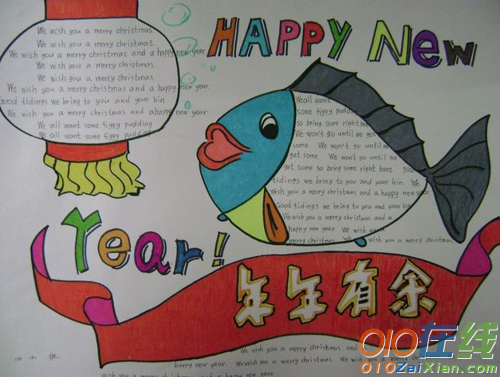 HAPPY New
We wish you a merry christmas
We wish you a merry christmas
We wish you a merry christmas and a happy new year
We wish you a merry christmas
We wish you a merry christmas
We wish you a merry christmas and a happy new year.
good tidings we bring to you and your kin
We wish you a merry christmas and a happy new year
We all want some figgy pudding
We all want
some figgy pudding
so bring some right here
We won't go until we
get some We won't go until
We won't go until we
get some so bring some right here good
tidings we bring to you and your kin We
wish you a merry christmas and a happy new
Good tidings we bring to you and your
We wish you a merry christmas and a
happy new year We wish you a
merry christmas We wish you a merry christmas
Year!
年年有余
We wish you a merry christmas and
happy new year We wish you a merry christmas
We wish you a merry christmas and a happy new year
010在线
010ZaiXian.com